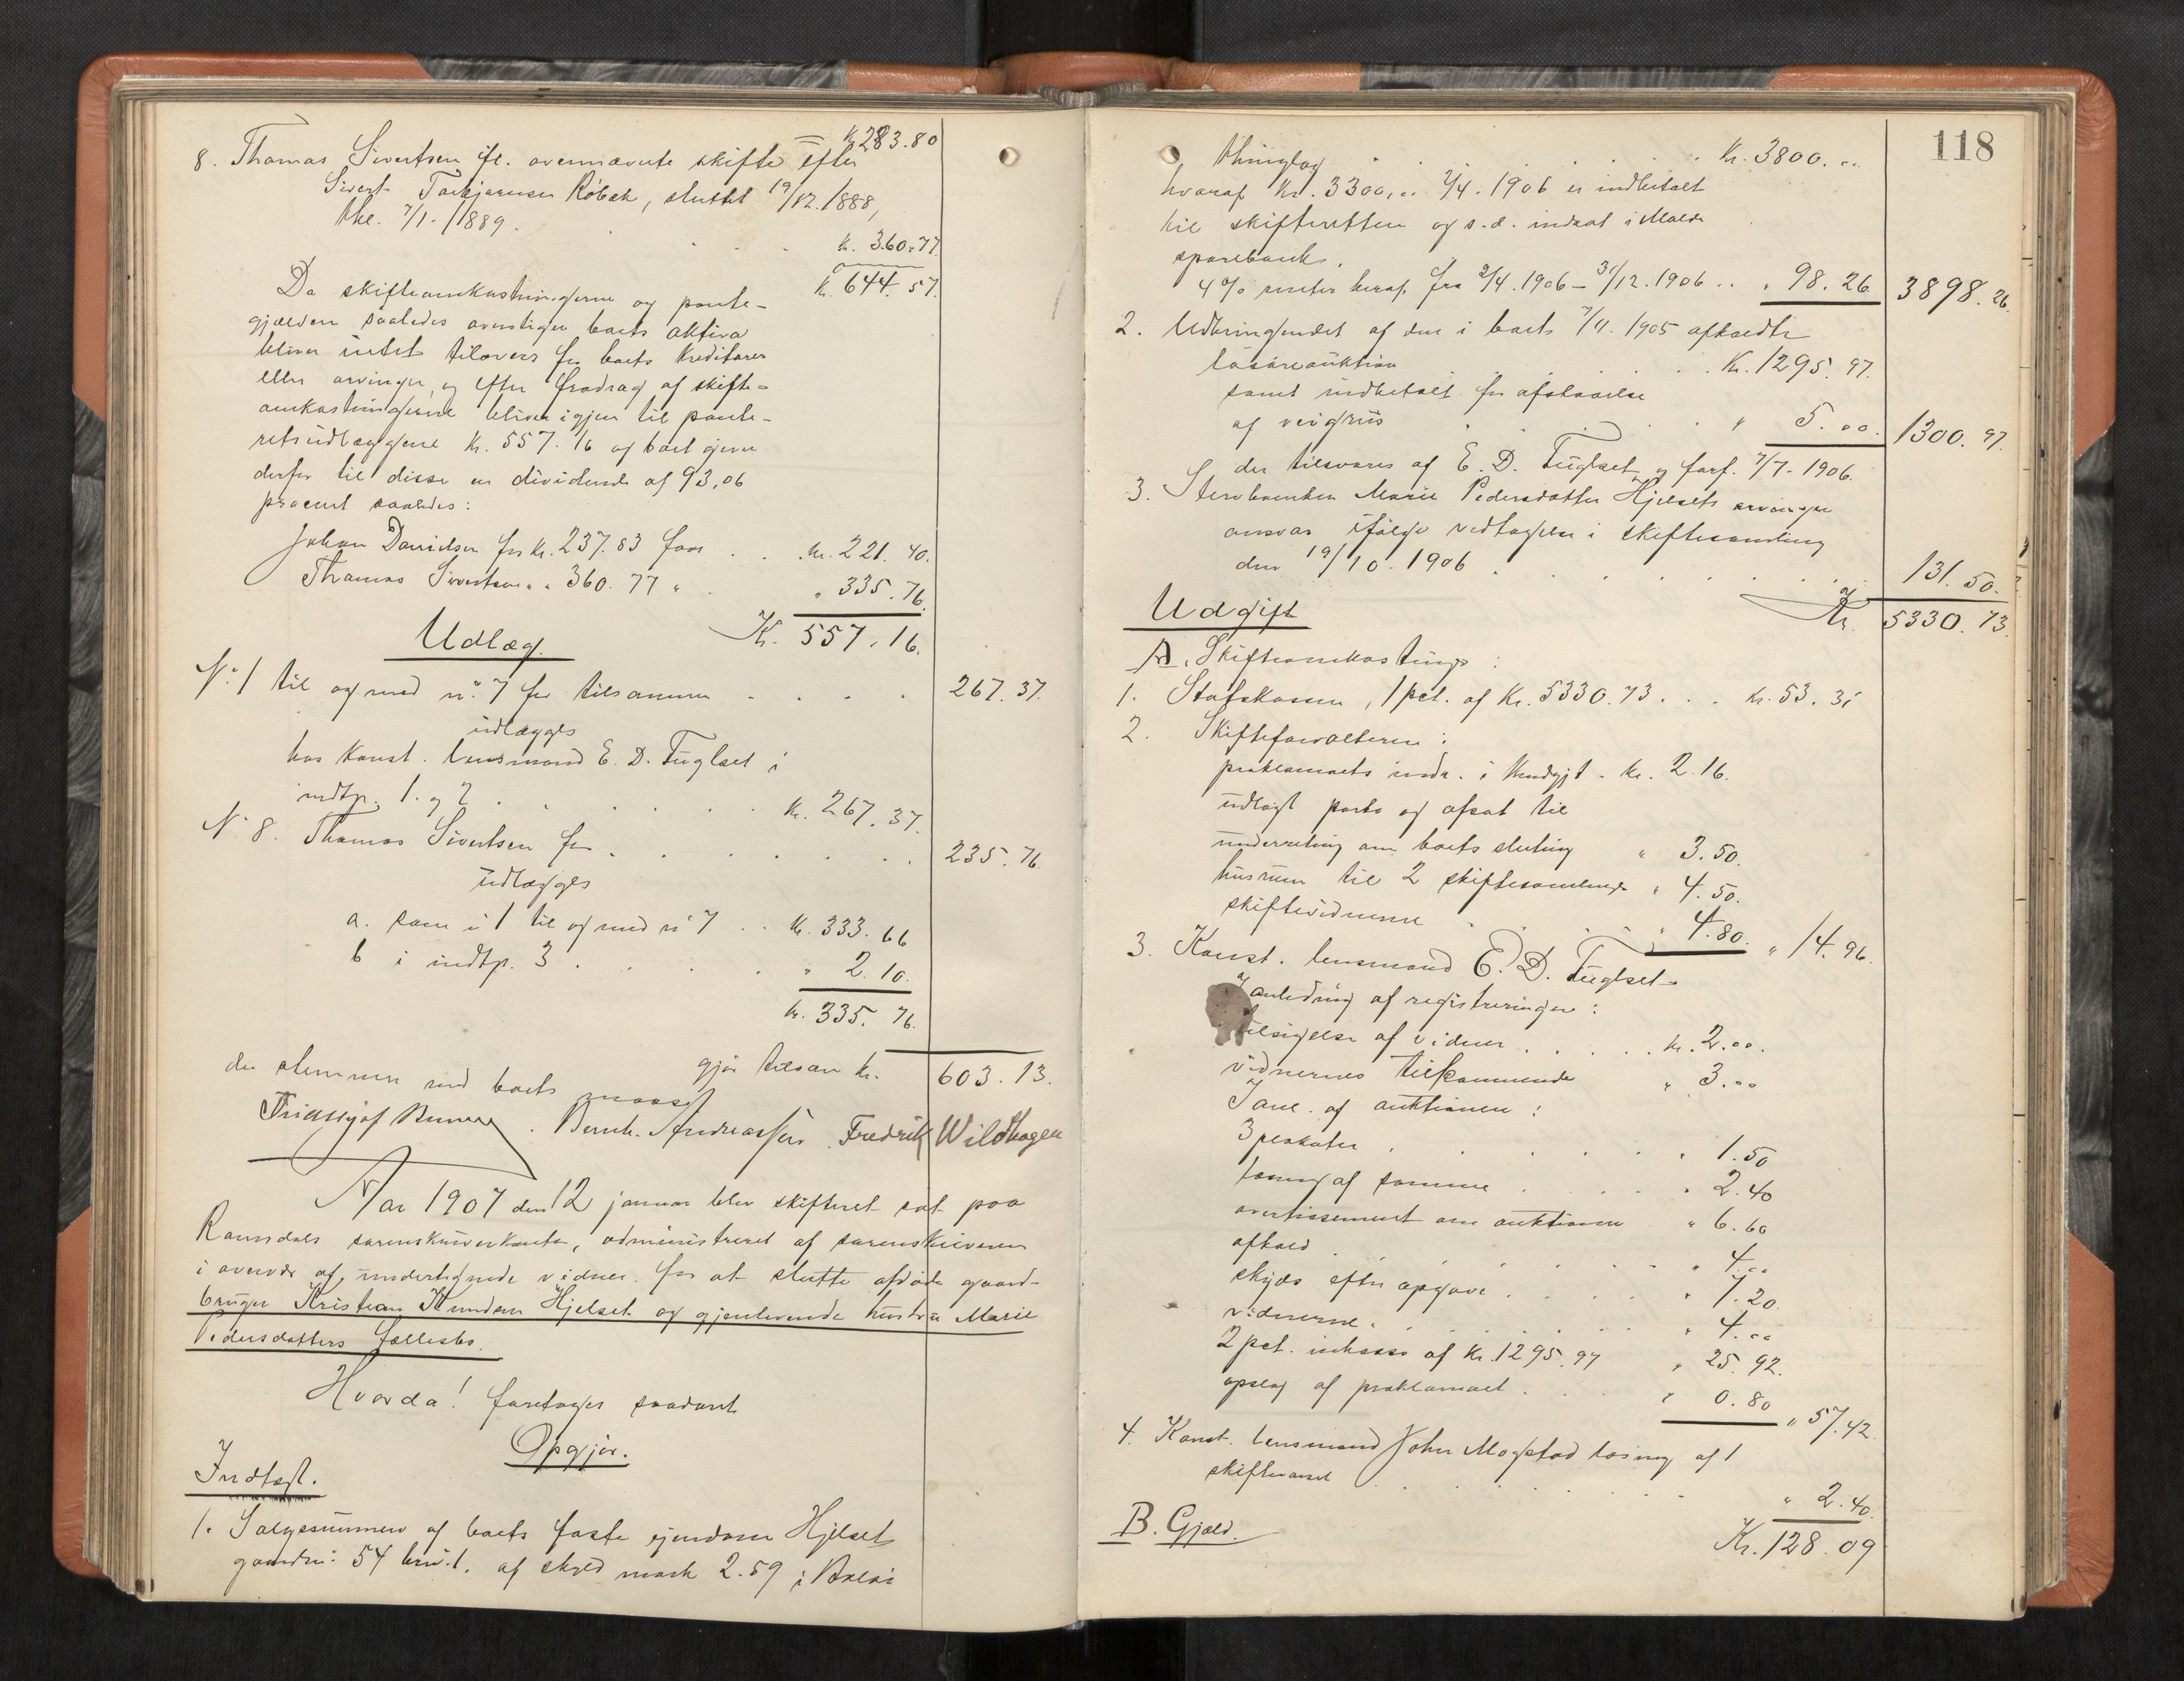 Kr 283.80
8. Thomas Sivertsen ifl. overnævnte skifte efter
Sivert Torbjørnsen Röbæk, sluttet 19/12. 1888,
thl. 7/1. 1889. . . . kr. 360.77.
kr. 644.57.
Da skifteomkostningerne og pante-
gjælden saaledes overstiger boets aktiva
bliver intet tilovers for boets kreditorer
eller arvinger og efter fradrag af skifte-
omkostningerne bliver igjen til pante-
retsudlæggene kr. 557.16 og boet giver
derfor til disse en dividende af 93,06
procent saaledes:
Johan Davidsen for kr. 237.83 faar . . kr. 221.40.
Thomas Sivertsen " " 360.77 " . " 335.76.
Kr. 557.16.
Udlæg.
No. 1 til og med no. 7 for tilsammen . . . . 267.37.
udlægges
hos konst. lensmand E. D. Fuglset i
indtp. 1. og 2 . . . . . . kr. 267.37.
No. 8. Thomas Sivertsen for . . . . . . . 235.76.
udlægges
a. som i 1 til og med no 7 . . kr. 333.66
b i indtp. 3 . . . . . " 2.10.
kr. 335.76.
gjør tilsam kr. 603.13.
der stemmer med boets masse
Bernh. Andreassen. Fredrik Wildhagen
Aar 1907 den 12 januar blev skifteret sat paa
Romsdals sorenskriverkontor, administreret af sorenskriveren
i overvær af undertegnede vidner for at slutte afdøde gaard-
bruger Kristian Knudsen Hjelset og gjenlevende hustru Marie
Pedersdatters fællesbo.
Hvorda! foretoges saadant
Opgjør.
Indtægt.
1. Salgssummen af boets faste eiendom Hjelset
gaardsno: 54 brno. 1. af skyld mark 2.59 i Bolsø
118
thinglag . . . . . . . Kr. 3800. "
hvoraf kr. 3300, " 2/4. 1906 er indbetalt
til skifteretten og s. d. indsat i Molde
sparebank.
4 % renter heraf fra 2/4. 1906 - 31/12. 1906 . . " 98.26 3898.26.
2. Udbringendet af den i boets 7/11. 1905 afholdte
løsøreauktion . . . . . . Kr. 1295.97.
samt indbetalt for afstaaelse
af veigrus . . . . . " 5.00. 1300.97.
der tilsvares af E. D. Fuglset og forf. 7/7. 1906.
3. Stervboenken Marie Pedersdatter Hjelsets arvinger
ansvar ifølge vedtagelse i skiftesamling
den 19/10. 1906 . . . . . . . . . 131.50.
Kr. 5330.73.
Udgift
A. Skifteomkostninger:
1. Statskassen, 1 pct. af Kr. 5330.73 . . . kr. 53.31
2. Skifteforvalteren:
proklamaets indr. i Kundgjt. kr. 2.16.
udlagt porto og afsat til
underretning om boets slutning " 3.50.
husrum til 2 skiftesamlinger " 4.50.
skiftevidnerne . . . . " 4.80. " 14.96.
3. Konst. lensmand E. D. Fuglset
I anledning af registreringen:
tilsigelse af vidner . . . . kr. 2.00.
vidnernes tilkommende " 3.00
I anl. af auktionen:
3 plakater . . . . . . . " 1.50
læsning af samme . . . . " 2.40
avertissement om auktionen " 6.60
afhold . . . . . . . " 4.00
skyds efter opgave . . . . " 7.20.
vidnerne . . . . . . . " 4.00
2 pct. inkasso af Kr. 1295.97 " 25.92.
opslag af proklamaet . . . " 0.80 " 57.42
4. Konst. lensmand John Mogstad læsning af 1
skiftevarsel . . . . . . . " 2.40.
Kr. 128.09
B. Gjæld.